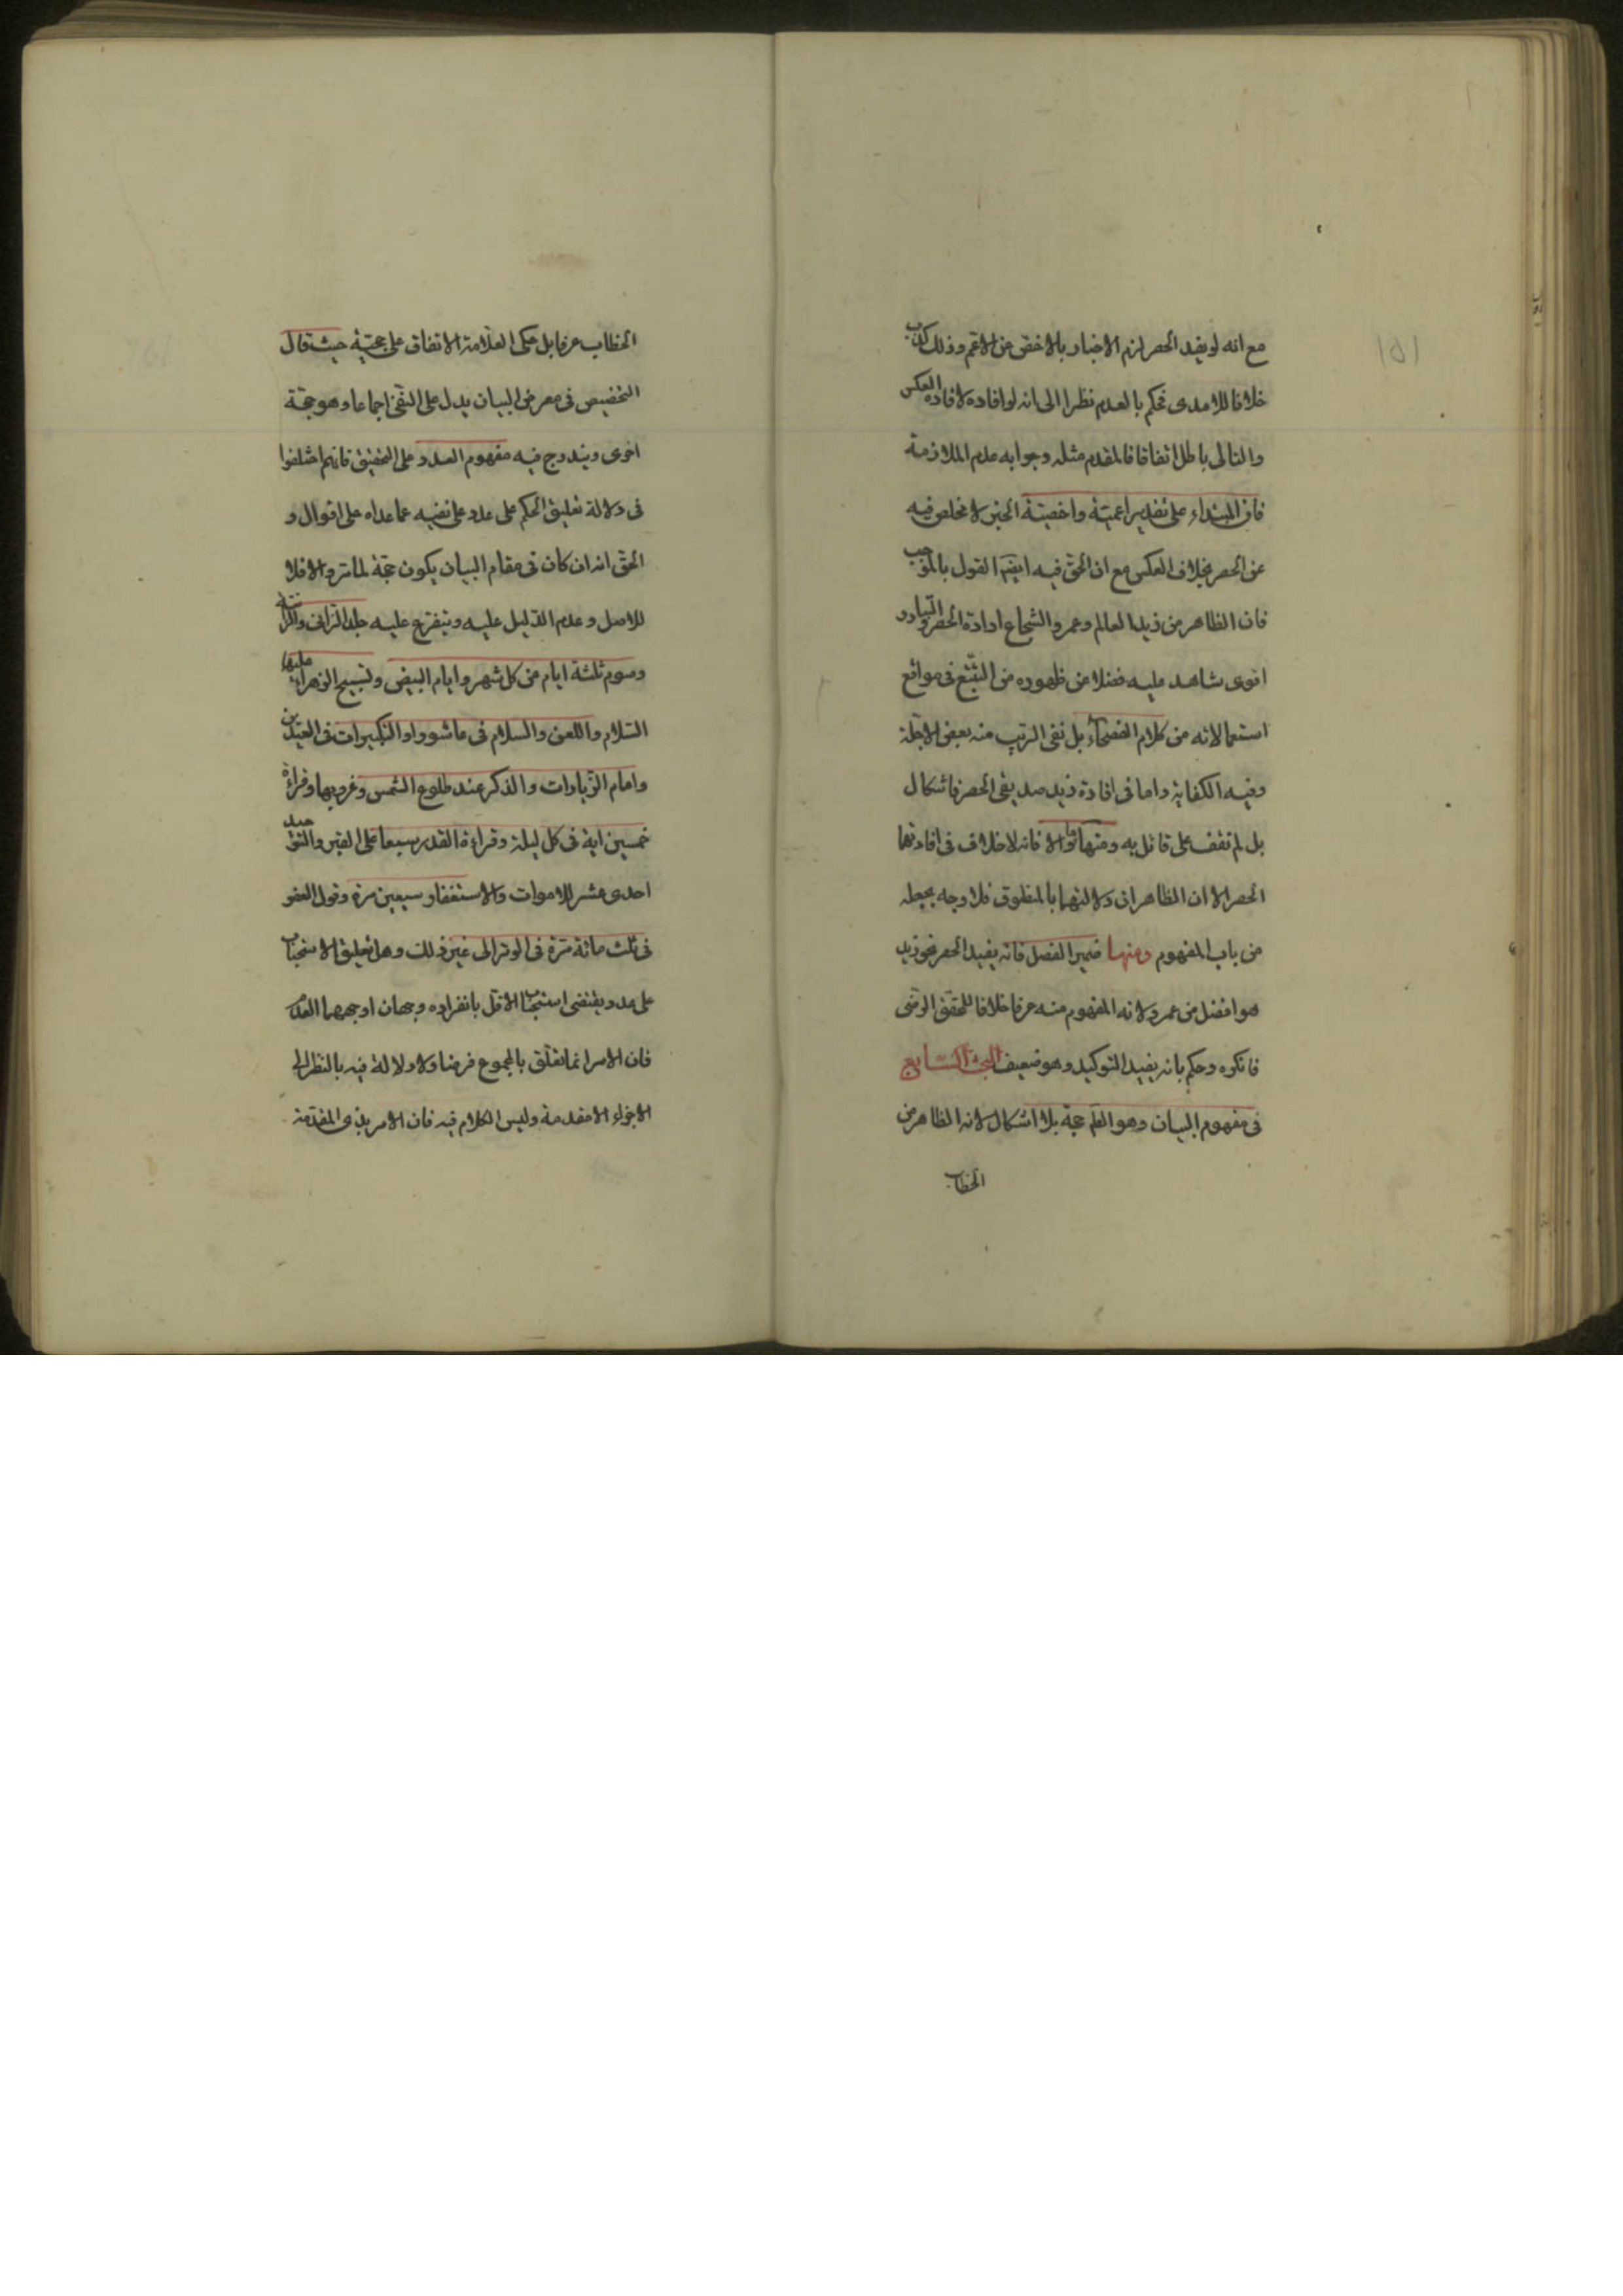 ١٥١
مع انه لو يفيد الحصر لزم الاخبار بالاخص عن الاعم وذلك كذب
خلافا للامدى فحكم بالعدم نظرا الى انه لو افاده لافاده العكس
والتالى باطل اتفاقا فالمقدم مثله وجوابه عدم الملازمة
فان المبتداء على تقدير اعميته واخصيته الخبر لا مخلص فيه
عن الحصر بخلاف العكس مع ان الحق فيه ايضا القول بالموجب
فان الظاهر من زيد العالم وعمرو الشجاع ارادة الحصر والتبادر
اقوى شاهد عليه فضلا عن ظهوره من التتبع فى مواقع
استعمالاته من كلام الفصحاء بل نفى الريب منه بعض الاجلة
وفيه الكفاية واما فى افادة زيد صديقى الحصر فاشكال
بل لم نقف على قائل به ومنها ما والا فانه لا خلاف فى افادتهما
الحصر الا ان الظاهر ان دلالتهما بالمنطوق فلا وجه بجعله
من باب المفهوم ومنها ضمير الفصل فانه يفيد الحصر نحو زيد
هو افضل من عمرو لانه المفهوم منه عرفا خلافا للمحقق الرضى
فانكره وحكم بانه يفيد التوكيد وهو ضعيف البحث السابع
فى مفهوم البيان وهو العلم حجة بلا اشكال لانه الظاهر من
الخطاب
الخطاب عرفا بل حكى العلامة الاتفاق على حجيته حيث قال
التخصيص فى معرض البيان يدل على النفى اجماعا وهو حجة
اخرى ويندرج فيه مفهوم العدد على التحقيق فانهم اختلفوا
فى دلالة تعليق الحكم على عدد على نفيه عما عداه على اقوال و
الحق انه ان كان فى مقام البيان يكون حجة لما مر والا فلا
للاصل وعدم الدليل عليه ويتفرع عليه جلد الزانى والزانية
وصوم ثلثة ايام من كل شهر وايام البيض وتسبيح الزهراء عليها
السلام واللعن والسلام فى عاشورا والتكبيرات فى العيدين
وامام الزيارات والذكر عند طلوع الشمس وغروبها وقراءة
خمسين اية فى كل ليلة وقراءة القدر سبعا على القبر والتوحيد
احدى عشر للاموات والاستغفار سبعين مرة وقول العفو
فى ثلث مائة مرة فى الوتر الى غير ذلك وهل تعليق الاستحباب
على عدد يقتضى استحباب الاقل بانفراده وجهان اوجههما العدم
فان الامر انما تعلق بالمجموع فرضا ولا دلالة فيه بالنظر الى
الاجزاء الا مقدمة وليس الكلام فيه فان الامر بذى المقدمة